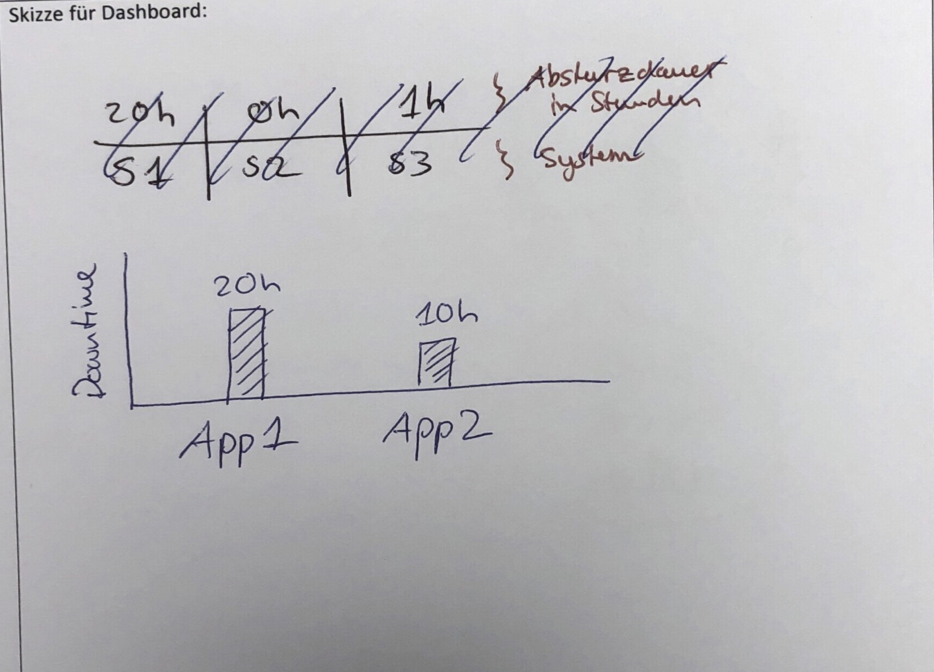 Skizze für Dashboard:
20h 0h 1h Absturzdauer
in Stunden
S1 S2 S3 System
Downtime
20h 10h
App1 App2